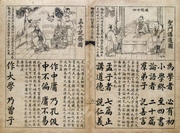 為學者必有初
小學終至四書
論語者二十篇
羣弟子記善言
孟子者七篇止
講道德說仁義
作中庸乃孔伋
中不偏庸不易
作大學乃曾子